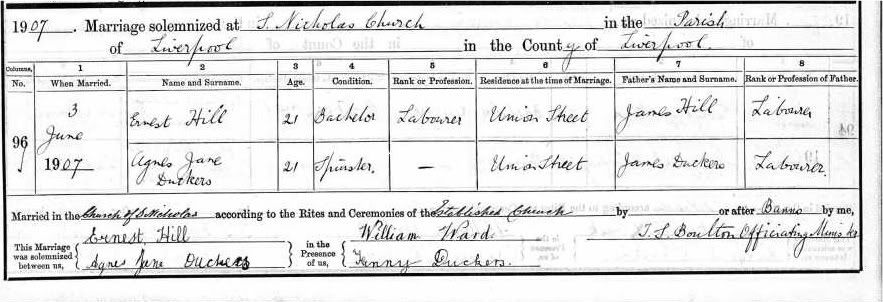 1907. Marriage solemnized at S. Nicholas Church in the Parish
of Liverpool in the County of Liverpool.
Columns. 1 2 3 4 5 6 7 8
No. When Married. Name and Surname. Age. Condition. Rank or Profession. Residence at the time of Marriage. Father's Name and Surname. Rank or Profession of Father.
96 3 June 1907 Ernest Hill 21 Bachelor Labourer Union Street James Hill Labourer
Agnes Jane Duckers 21 Spinster. — Union Street James Duckers Labourer
Married in the Church of S. Nicholas according to the Rites and Ceremonies of the Established Church by or after Banns by me,
This Marriage was solemnized between us, Ernest Hill in the Presence of us, William Ward T. S. Boulton Officiating Minister
Agnes Jane Duckers Fanny Duckers.